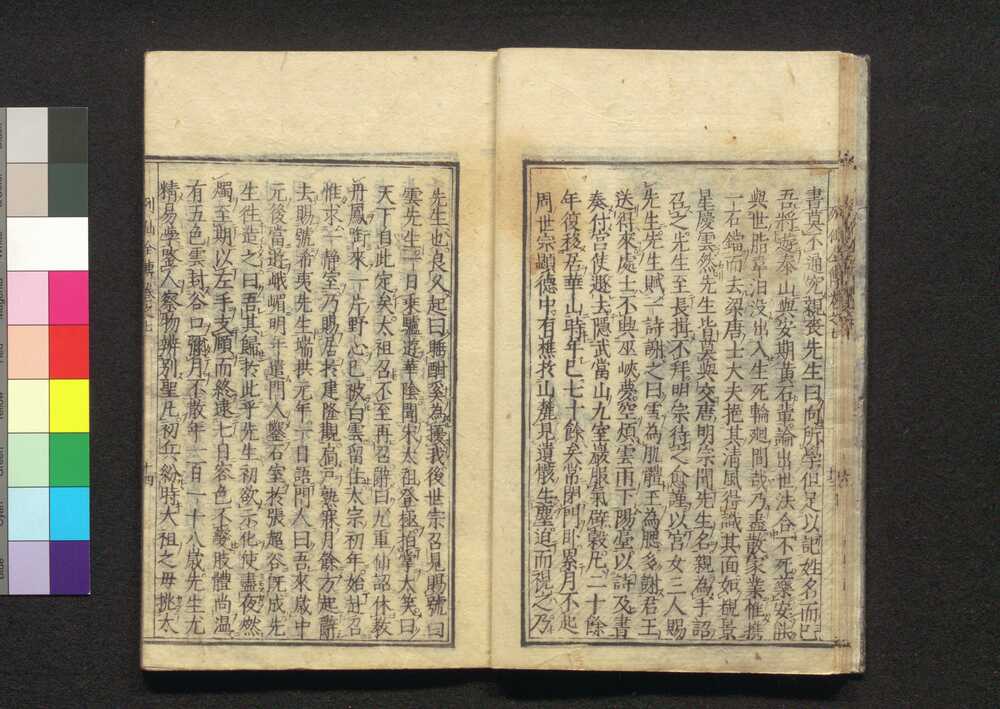 書莫不通究親喪先生曰向所學但足以記姓名而已
吾將遊泰山與安期黃石輩論出世法合不死藥安能
與世脂韋汨沒出入生死輪廻間哉乃盡散家業惟攜
一石鐺而去梁唐士大夫挹其清風得識其面如覩景
星慶雲然先生皆莫與交唐明宗聞先生名親為手詔
召之先生至長揖不拜明宗待之愈謹以宮女三人賜
先生先生賦一詩謝之曰雪為肌體玉為腮多謝君王
送得來處士不興巫峽夢空煩雲雨下陽臺以詩及書
奏付宮使遽去隱武當山九室巖服氣辟穀凡二十餘
年復移居華山時年已七十餘矣常閉門臥累月不起
周世宗顯德中有樵於山麓見遺骸生塵迫而視之乃
先生也良久起曰睡酣奚為擾我後世宗召見賜號白
雲先生一日乘驢遊華陰聞宋太祖登極拍掌大笑曰
天下自此定矣太祖召不至再召辭曰九重仙詔休教
丹鳳銜來一片野心已被白雲留住太宗初年始赴召
惟求一靜室乃賜居於建隆觀扃戶熟寐月餘方起辭
去賜號希夷先生端拱元年一日語門人曰吾來歲中
元後當遊峨嵋明年遣門人鑿石室於張超谷既成先
生往造之曰吾其歸於此乎先生初欲示化使盡夜燃
燭至期以左手支頤而終逮七日容色不變肢體尚溫
有五色雲封谷口彌月不散年一百一十八歲先生尤
精易學凡人察物辨別聖凡初兵紛時太祖之母挑太
列仙全傳卷之七 十四